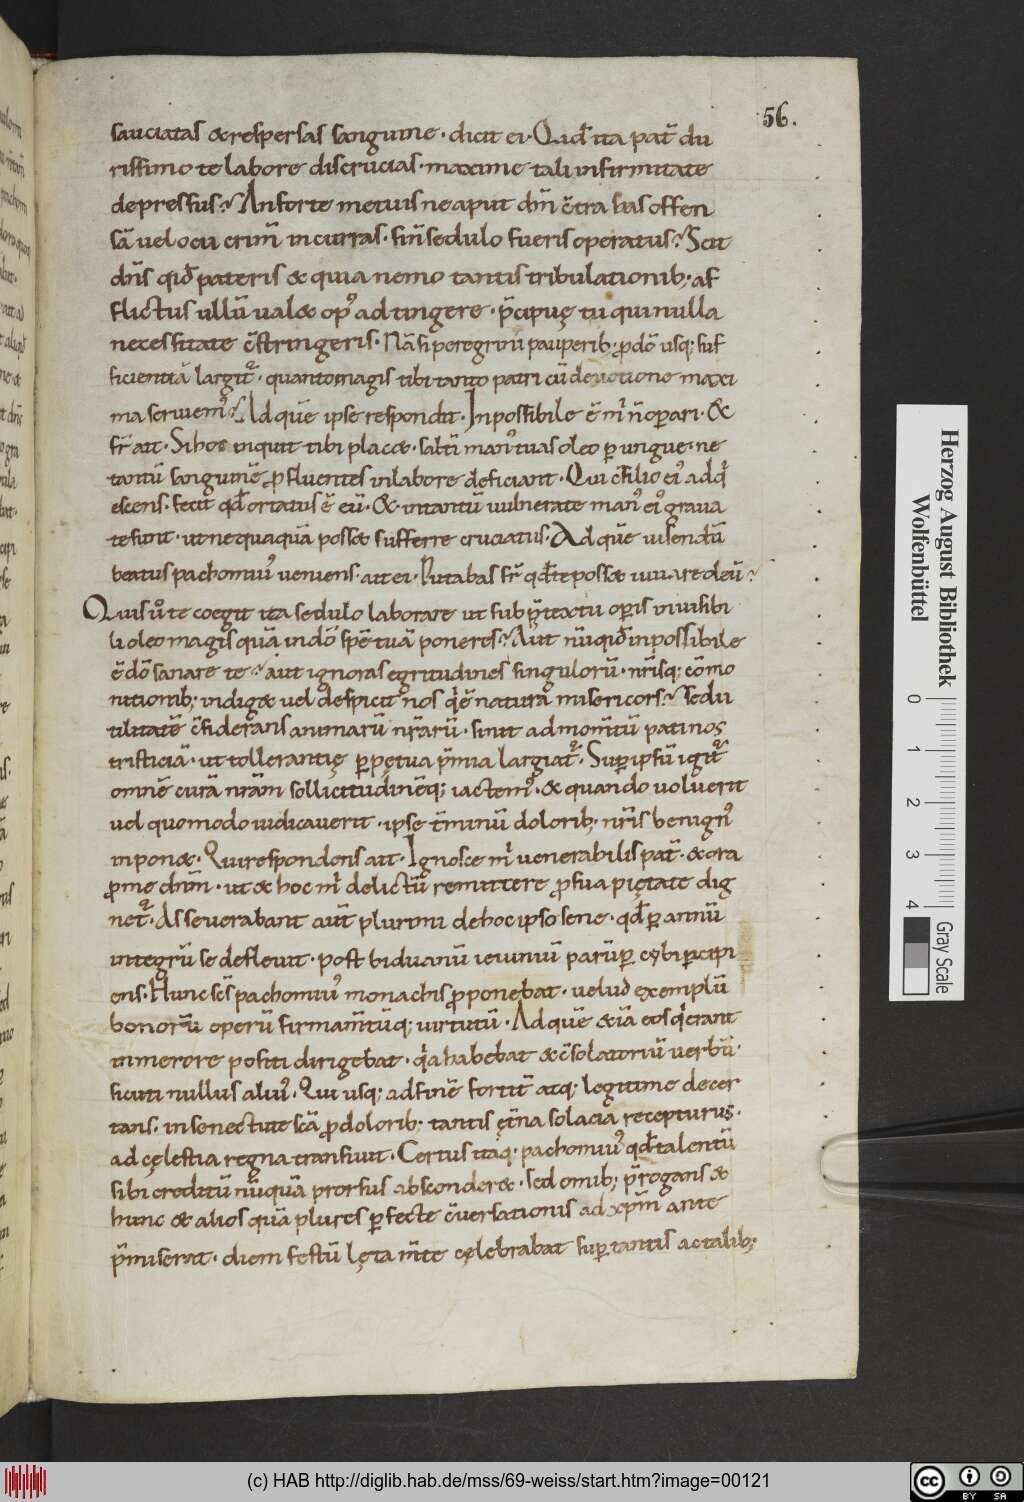 56.
sauciatas & respersas sanguine · dicit ei · Quid ita pat̄ du
rissimo te labore discrucias · maxime tali infirmitate
depressus? An forte metuis ne aput dn̄m c̄tra has offen
sā uel oc̄ii crim̄ incurras · sin̄ sedulo fueris operatus? Scit
dn̄s qid pateris & quia nemo tantis tribulationib; af
flictus ullū ual& op' adtingere · p̄cipuę tu qui nulla
necessitate c̄stringeris · Nā si peregrinū pauperib; p̄dō usq; suf
ficientiā largit̄ · quanto magis tibi tanto patri cū deuotione maxi
ma seruiem'? Ad quē ipse respondit · Inpossibile ē m̄ n̄ operari · &
fr̄ ait · Si hoc inquit tibi plac& · saltī man' tuas oleo p̄ ungue · ne
tantū sanguinē p̄fluentes in labore deficiant · Qui c̄silio ei' adq̇
escens · fecit qd̄ ortatus ē eū · & in tantū uulnerate man' ei' graua
te sunt · ut nequaquā poss& sufferre cruciatus · Ad quē uisendū
beatus pachomiu' ueniens · ait ei · Putabas fr̄ qd̄ te poss& iuuare oleū?
Quis ů te coegit ita sedulo laborare ut sub p̄textu op̄is inuisibi
li oleo magis quā in dō spē tuā poneres? Aut nūquid inpossibile
ē dō sanare te? aut ignoras egritudines singulorū · nr̄isq; cōmo
nitionib; indig& uel despicit nos q̇ ē natura misericors? sed u
tilitatē c̄siderans animarū nr̄arū · sinit ad mom̄tū pati nos
tristiciā · ut tollerantię p̄pętua p̄mia largiat̄ · Sup̄ ipsū igit̄
omnē curā nr̄am sollicitudinēq; iactem' · & quando uoluerit
uel quomodo iudicauerit · ipse t̄minū dolorib; nr̄is benign'
inpon& · Qui respondens ait · Ignosce m̄ uenerabilis pat̄ · & ora
p̄ me dn̄m · ut & hoc m̄ delictū remittere p̄ sua pietate dig
net̄ · Asseuerabant aūt plurimi de hoc ipso sene · qd̄ p̄ annū
integrū se defleuit · post biduanū ieiuniū parūp̄ cybi p̄cipi
ens · Hunc sc̄s pachomiu' monachis p̄ponebat · uelud exemplū
bonorū operū firmam̄tūq; uirtutū · Ad quē & iā eos q̇ erant
in merore positi dirigebat · q̇a habebat & c̄solatoriū uerbū ·
sicuti nullus aliu' · Qui usq; ad finē fortit̄ atq; legitime decer
tans · in senectute scā p̄ dolorib; tantis ęt̄na solacia recepturus ·
ad cęlestia regna transiuit · Certus itaq; pachomiu' qd̄ talentū
sibi creditū nūquā prorsus absconder& · sed omib; p̄rogans &
hunc & alios quā plures p̄fecte c̄uersationis ad xp̄m ante
p̄miserat · diem festū lęta m̄te cęlebrabat sup̄ tantis ac talib;
Herzog August Bibliothek
Wolfenbüttel
0 1 2 3 4
Gray Scale
(c) HAB http://diglib.hab.de/mss/69-weiss/start.htm?image=00121
cc BY SA